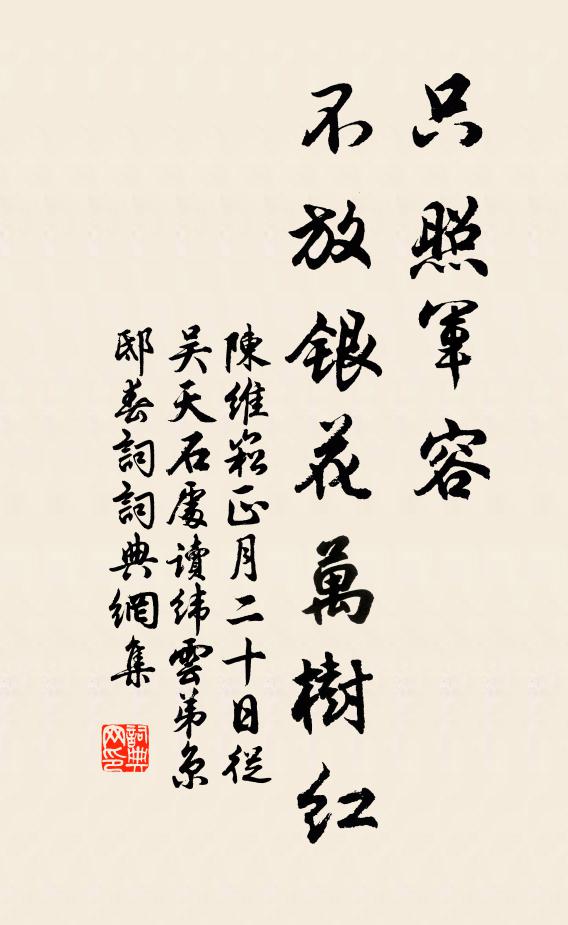 只照軍容
不放銀花萬樹紅
陳維崧正月二十日從
吴天石處讀緯雲弟京
邸春詞詞典網集
詞典网印